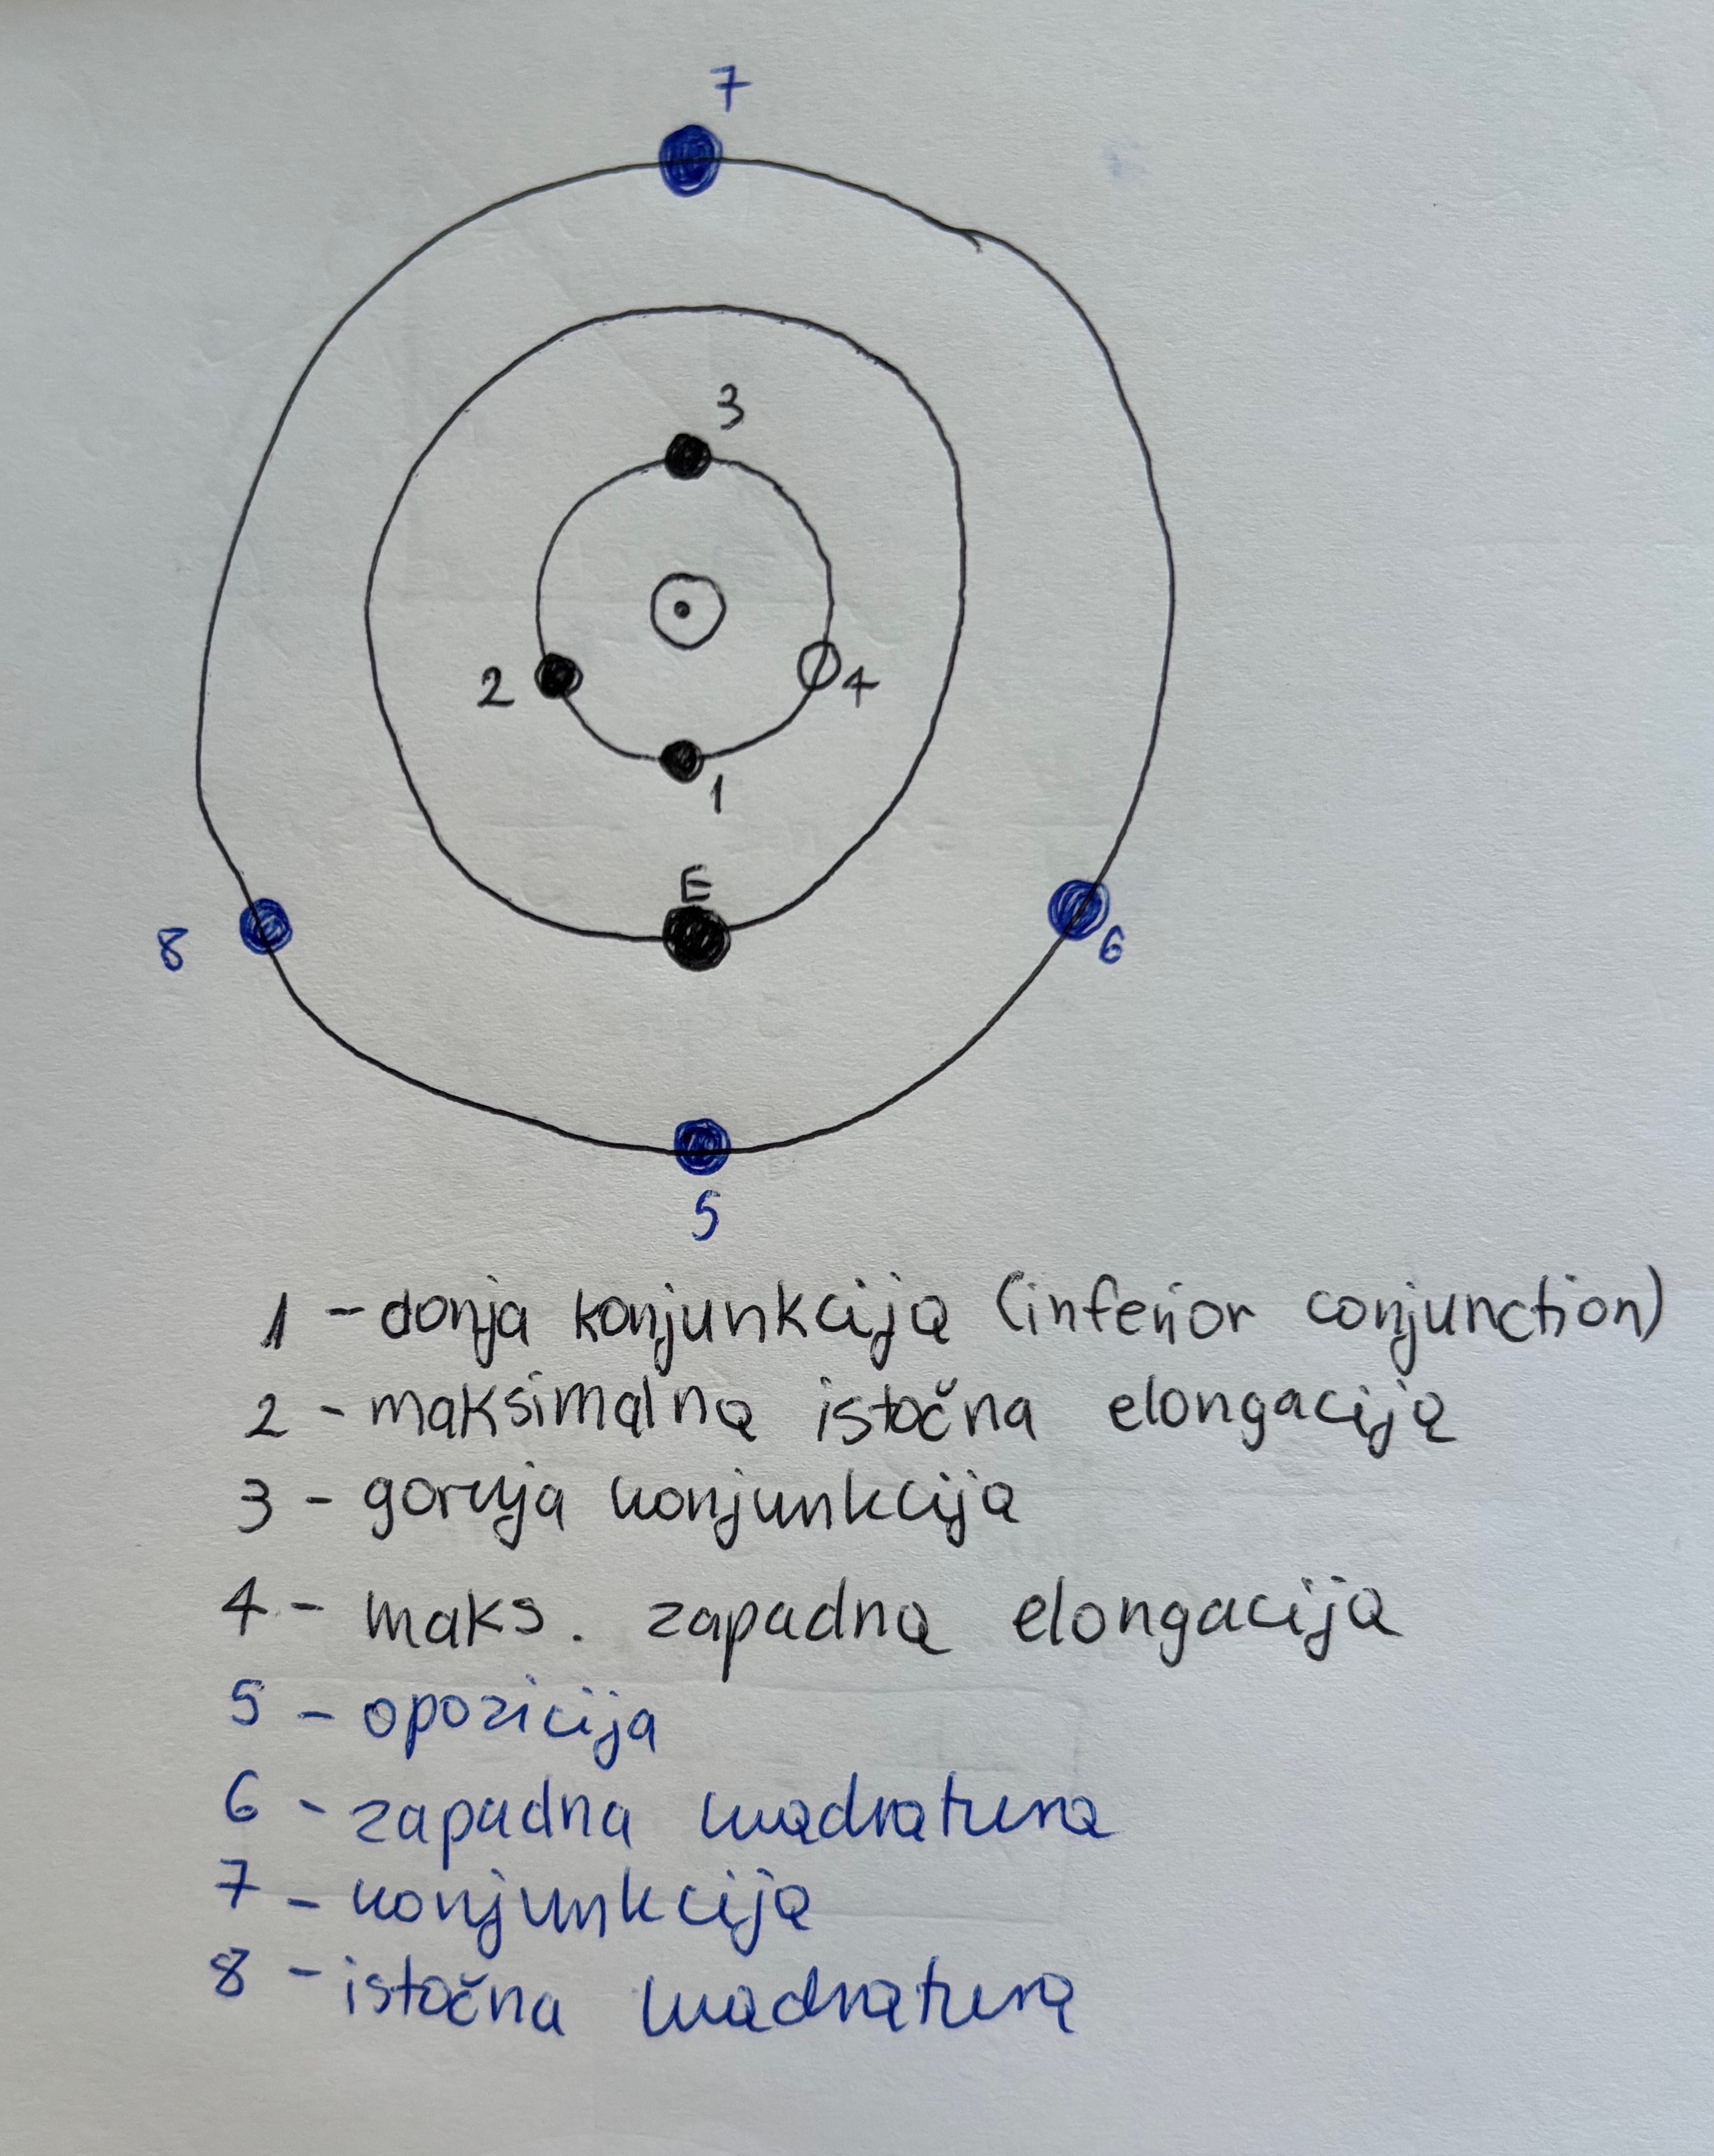 7
3
2
4
1
E
8
6
5
1 - donja konjunkcija (inferior conjunction)
2 - maksimalna istočna elongacija
3 - gornja konjunkcija
4 - maks. zapadna elongacija
5 - opozicija
6 - zapadna kvadratura
7 - konjunkcija
8 - istočna kvadratura